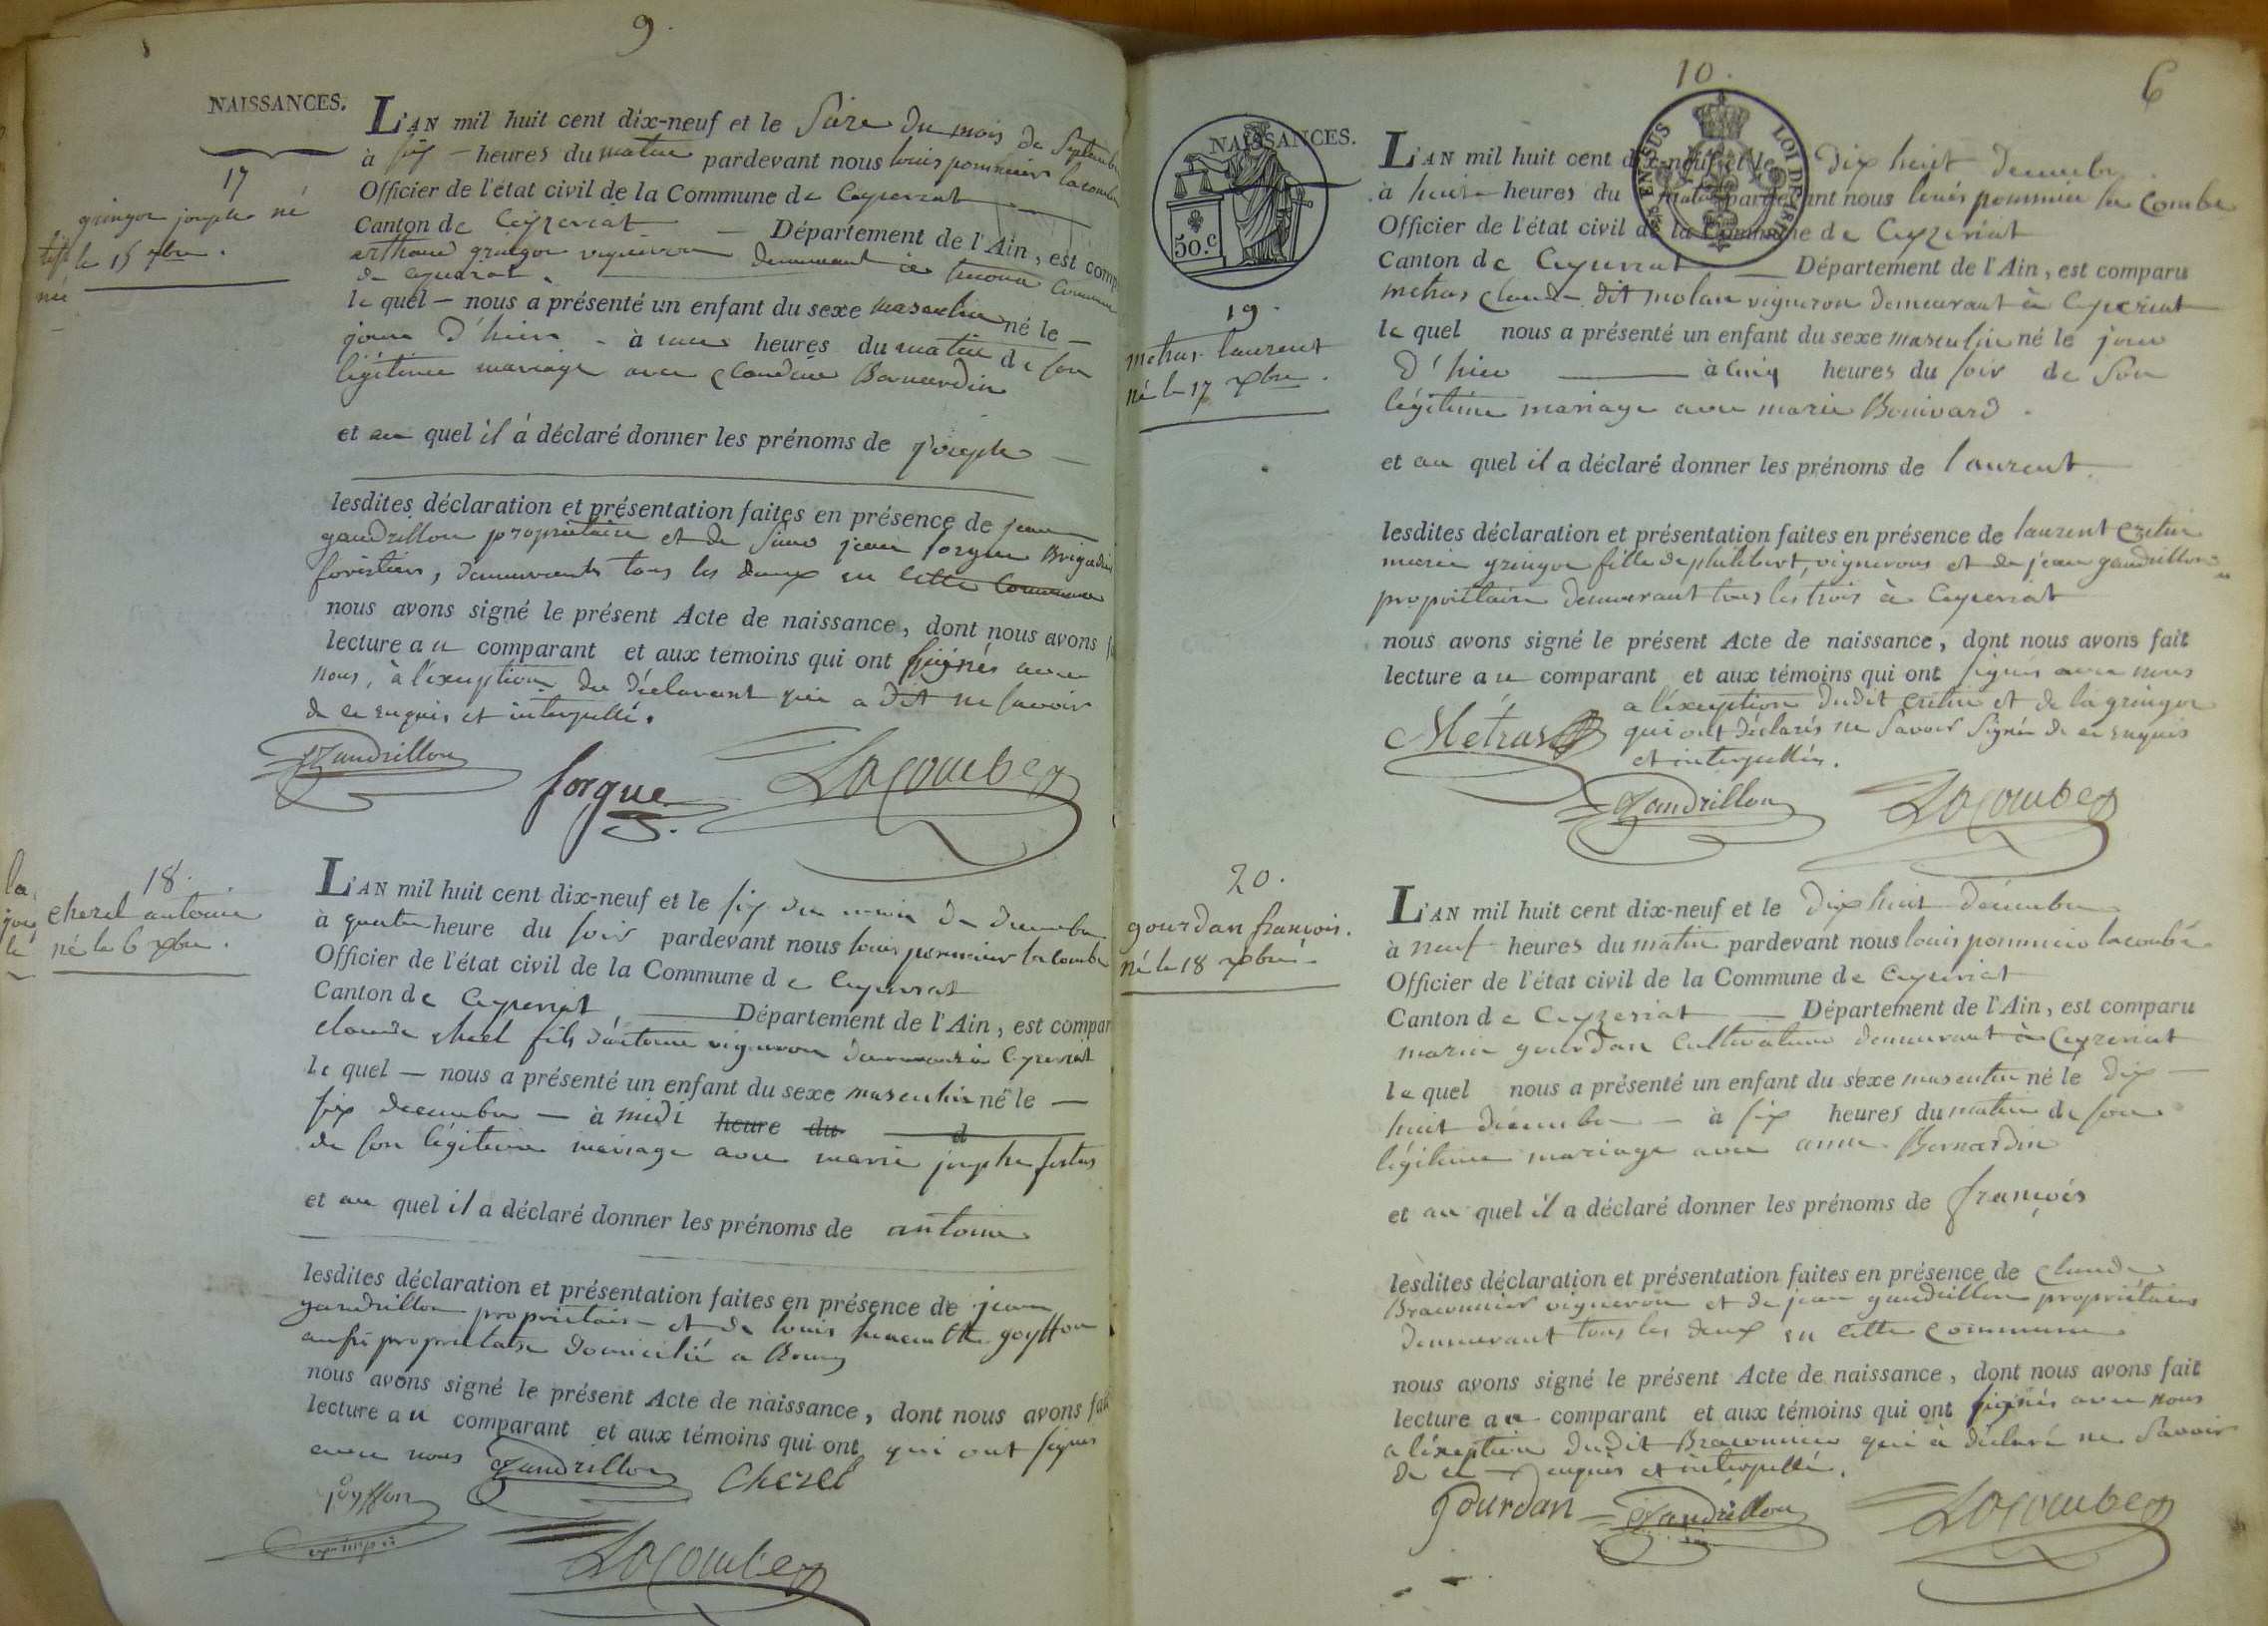 9.
NAISSANCES.
17
gringoz joseph né
le 15 7bre.
L'AN mil huit cent dix-neuf et le Seize du mois de Septembre
à six - heures du matin pardevant nous louis pommier lacombe
Officier de l'état civil de la Commune de Ceyzeriat
Canton de Ceyzeriat — Département de l'Ain, est comp
gringoz vigneron demeurant à Commune
de Ceyzeriat.
le quel — nous a présenté un enfant du sexe masculin né le —
jour d'hier - à heures du matin de son
légitime mariage avec claudine Bernardin
et au quel il a déclaré donner les prénoms de joseph —
lesdites déclaration et présentation faites en présence de jean
gandrillon propriétaire et de Sieur jean forgue Brigadier
forestier, demeurants tous les deux en cette Commune
nous avons signé le présent Acte de naissance, dont nous avons f
lecture au comparant et aux témoins qui ont signés avec
nous, à l'exception du déclarant qui a dit ne savoir
de ce enquis et interpellé.
Gandrillon forgue Lacombe
18.
cherel antoine
né le 6 xbre.
L'AN mil huit cent dix-neuf et le six du mois de decembre
à quatre heure du soir pardevant nous louis pommier lacombe
Officier de l'état civil de la Commune de Ceyzeriat
Canton de Ceyzeriat, — Département de l'Ain, est compar
claude cherel fils d'antoine vigneron demeurant à Ceyzeriat
le quel — nous a présenté un enfant du sexe masculin né le —
six decembre — à midi heure du d
de son légitime mariage avec marie josephe
et au quel il a déclaré donner les prénoms de antoine
lesdites déclaration et présentation faites en présence de jean
gandrillon propriétaire et de louis goyffon
aussi propriétaire domicilié a Bourg
nous avons signé le présent Acte de naissance, dont nous avons fait
lecture au comparant et aux témoins qui ont qui ont signés
avec nous Gandrillon Cherel
goyffon
Lacombe
10.
6
EN SUS LOI DE
NAISSANCES.
50.c
19.
metras laurent
né le 17 xbre.
L'AN mil huit cent dix-neuf et le dix huit decembre
à huit heures du matin pardevant nous louis pommier la Combe
Officier de l'état civil de la Commune de Ceyzeriat
Canton de Ceyzeriat — Département de l'Ain, est comparu
metras claude dit molan vigneron demeurant à Ceyzeriat
le quel nous a présenté un enfant du sexe masculin né le jour
d'hier — à cinq heures du soir de son
légitime mariage avec marie Bonivard.
et au quel il a déclaré donner les prénoms de laurent.
lesdites déclaration et présentation faites en présence de laurent cretin
marie gringoz fille de philibert, vignerons et de jean gandrillon
propriétaire demeurant tous les trois à Ceyzeriat
nous avons signé le présent Acte de naissance, dont nous avons fait
lecture au comparant et aux témoins qui ont signés avec nous
a l'exception dudit cretin et de la gringoz
qui ont déclarés ne savoir signer de ce enquis
et interpellés.
Métras
Gandrillon Lacombe
20.
gourdan françois.
né le 18 xbre.
L'AN mil huit cent dix-neuf et le dix huit décembre
à neuf heures du matin pardevant nous louis pommier lacombe
Officier de l'état civil de la Commune de Ceyzeriat
Canton de Ceyzeriat — Département de l'Ain, est comparu
marie gourdan Cultivateur demeurant à Ceyzeriat
le quel nous a présenté un enfant du sexe masculin né le dix —
huit décembre — à six heures du matin de son
légitime mariage avec anne Bernardin
et au quel il a déclaré donner les prénoms de françois
lesdites déclaration et présentation faites en présence de claude
Braconnier vigneron et de jean gandrillon propriétaire
demeurant tous les deux en cette commune
nous avons signé le présent Acte de naissance, dont nous avons fait
lecture au comparant et aux témoins qui ont signés avec nous
a l'exception dudit Braconnier qui a déclaré ne savoir
de ce enquis et interpellé.
Gourdan Gandrillon Lacombe